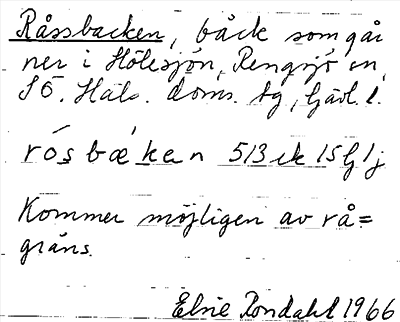 Råssbacken, bäck som går
ner i Hölesjön, Rengsjö sn,
SÖ. Häls. doms. tg, Gävl. l.
rósbǽken 513 ek 15 G l j
Kommer möjligen av rå=
gräns.
Elsie Rondahl 1966